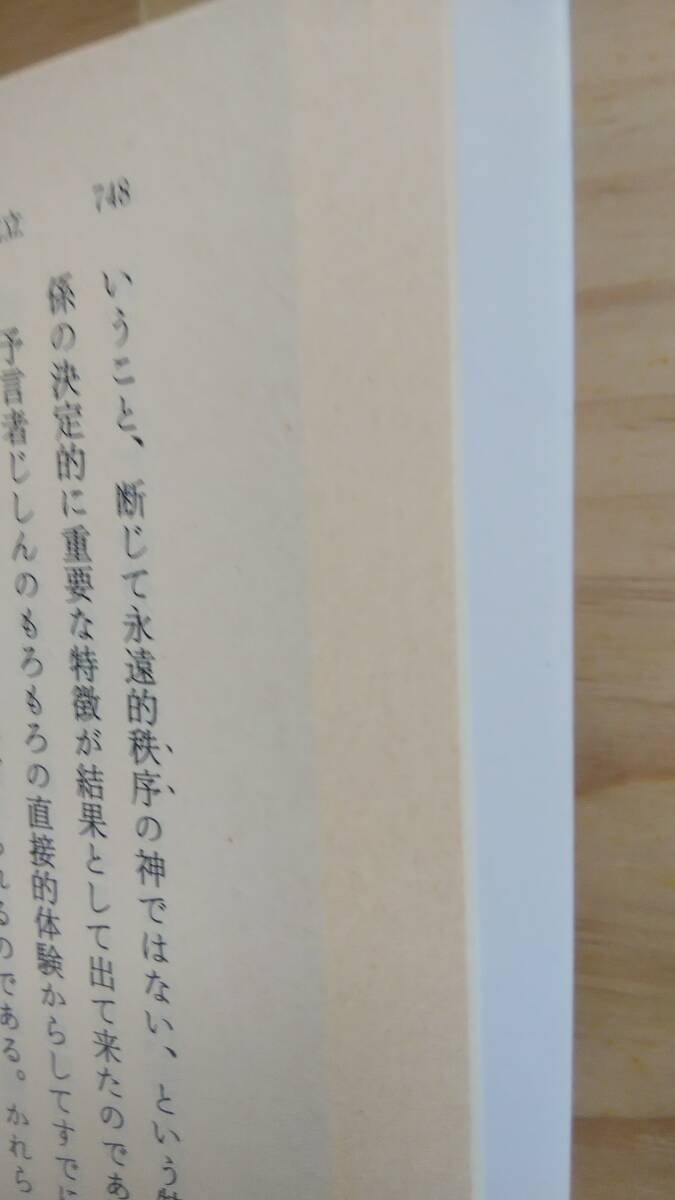 748
いうこと、断じて永遠的秩序の神ではない、という
係の決定的に重要な特徴が結果として出て来たのであ
予言者じしんのもろもろの直接的体験からしてすでに
れるのである。かれら